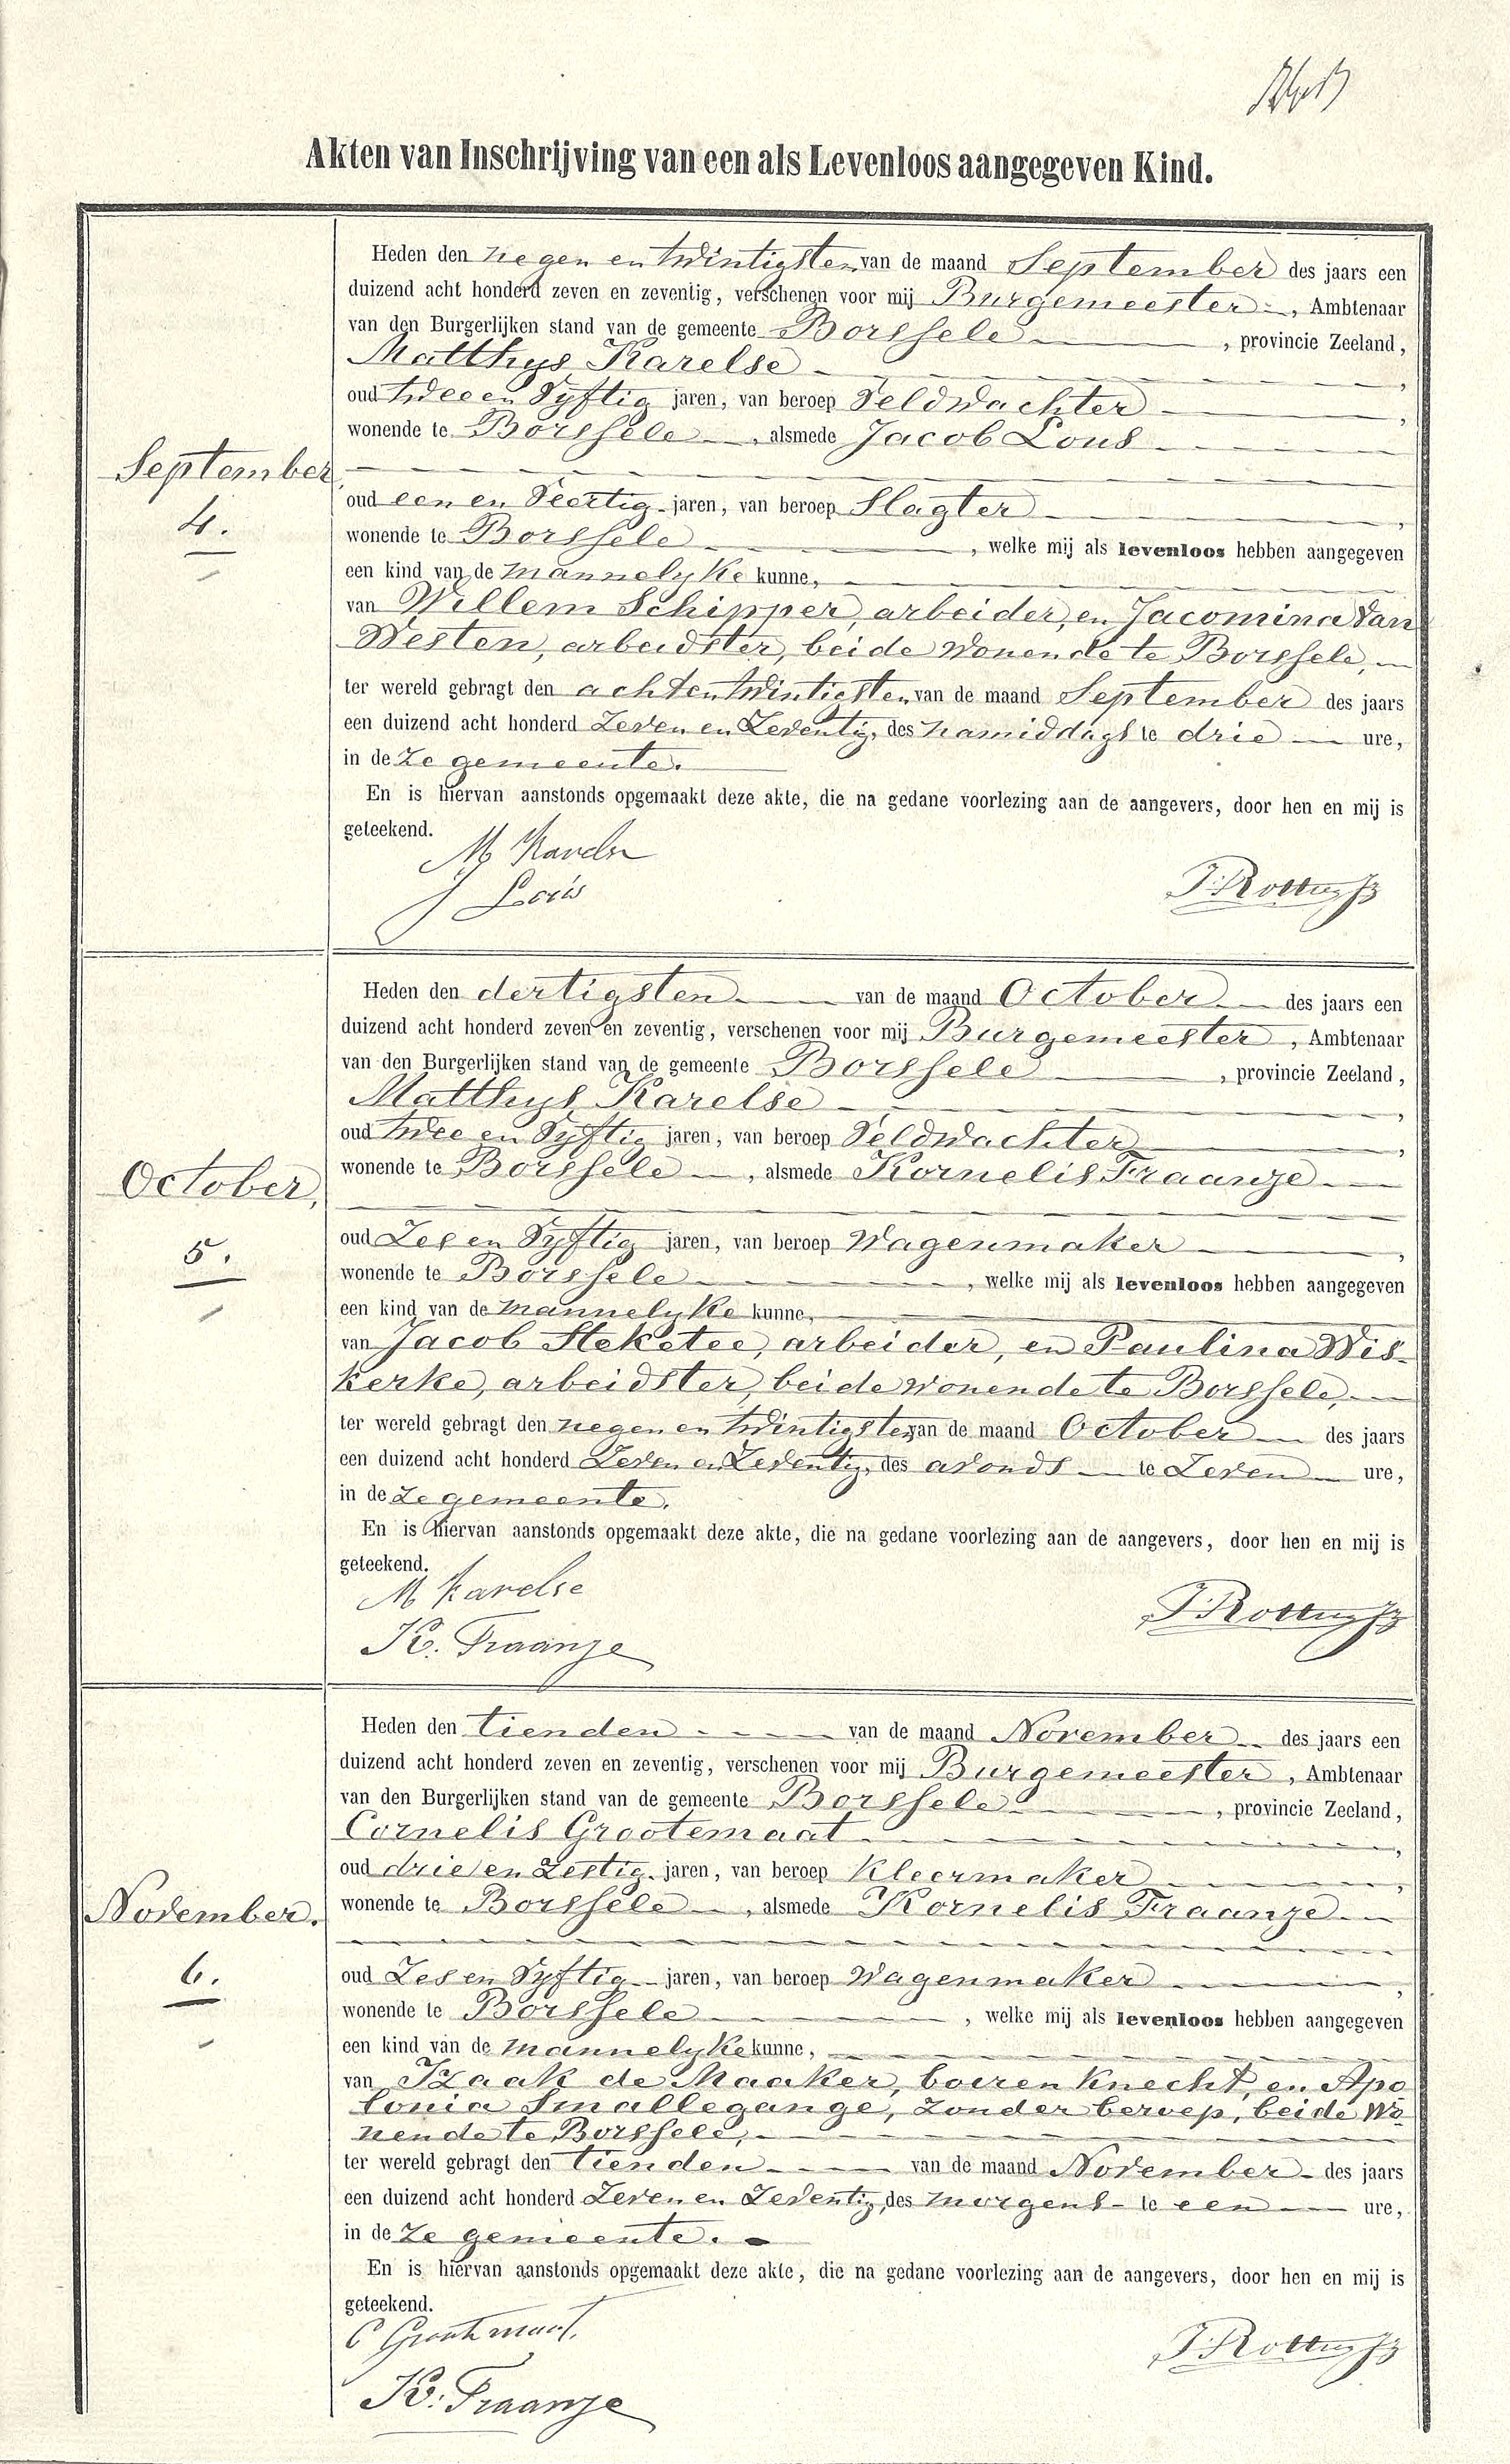 Akten van Inschrijving van een als Levenloos aangegeven Kind.
September
4.
Heden den negen en twintigsten van de maand September des jaars een
duizend acht honderd zeven en zeventig, verschenen voor mij Burgemeester, Ambtenaar
van den Burgerlijken stand van de gemeente Borssele, provincie Zeeland,
Matthys Karelse,
oud twee en vyftig jaren, van beroep veldwachter,
wonende te Borssele, alsmede Jacob Lous
oud een en veertig jaren, van beroep Slagter,
wonende te Borssele, welke mij als levenloos hebben aangegeven
een kind van de mannelyke kunne,
van Willem Schipper, arbeider, en Jacomina van
Westen, arbeidster, beide wonende te Borssele,
ter wereld gebragt den achtentwintigsten van de maand September des jaars
een duizend acht honderd zeven en zeventig, des namiddags te drie ure,
in deze gemeente.
En is hiervan aanstonds opgemaakt deze akte, die na gedane voorlezing aan de aangevers, door hen en mij is
geteekend.
M Karelse
J Lous
October,
5.
Heden den dertigsten van de maand October des jaars een
duizend acht honderd zeven en zeventig, verschenen voor mij Burgemeester, Ambtenaar
van den Burgerlijken stand van de gemeente Borssele, provincie Zeeland,
Matthys Karelse,
oud twee en vyftig jaren, van beroep veldwachter,
wonende te Borssele, alsmede Kornelis Fraanje
oud zes en vyftig jaren, van beroep Wagenmaker,
wonende te Borssele, welke mij als levenloos hebben aangegeven
een kind van de mannelyke kunne,
van Jacob Steketee, arbeider, en Paulina Wis-
kerke, arbeidster, beide wonende te Borssele,
ter wereld gebragt den negen en twintigsten van de maand October des jaars
een duizend acht honderd zeven en zeventig, des avonds te zeven ure,
in deze gemeente.
En is hiervan aanstonds opgemaakt deze akte, die na gedane voorlezing aan de aangevers, door hen en mij is
geteekend.
M Karelse
K. Fraanje
November.
6.
Heden den tienden van de maand November des jaars een
duizend acht honderd zeven en zeventig, verschenen voor mij Burgemeester, Ambtenaar
van den Burgerlijken stand van de gemeente Borssele, provincie Zeeland,
Cornelis Grootemaat,
oud drie en zestig jaren, van beroep Kleermaker,
wonende te Borssele, alsmede Kornelis Fraanje
oud zes en vyftig jaren, van beroep Wagenmaker,
wonende te Borssele, welke mij als levenloos hebben aangegeven
een kind van de mannelyke kunne,
van Izaak de Maaker, boerenknecht, en Apo
lonia Smallegange, zonder beroep, beide wo
nende te Borssele,
ter wereld gebragt den tienden van de maand November des jaars
een duizend acht honderd zeven en zeventig, des morgens te een ure,
in deze gemeente.
En is hiervan aanstonds opgemaakt deze akte, die na gedane voorlezing aan de aangevers, door hen en mij is
geteekend.
C Grootemaat.
K: Fraanje